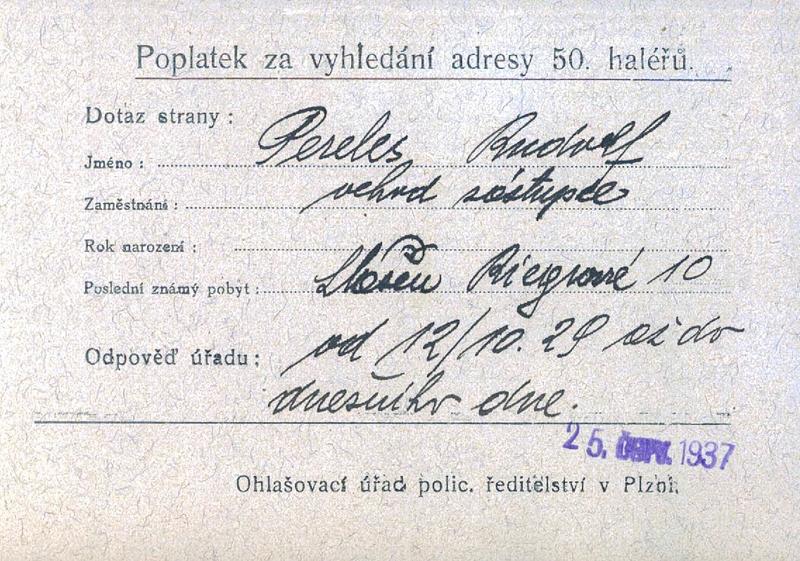 Poplatek za vyhledání adresy 50. haléřů.
Dotaz strany:
Jméno: Pereles Rudolf
Zaměstnání: zástupce
Rok narození:
Poslední známý pobyt: Riegrova 10
Odpověď úřadu: od 12/10. 29 až do
dnešního dne.
25. 1937
Ohlašovací úřad polic. ředitelství v Plzni.